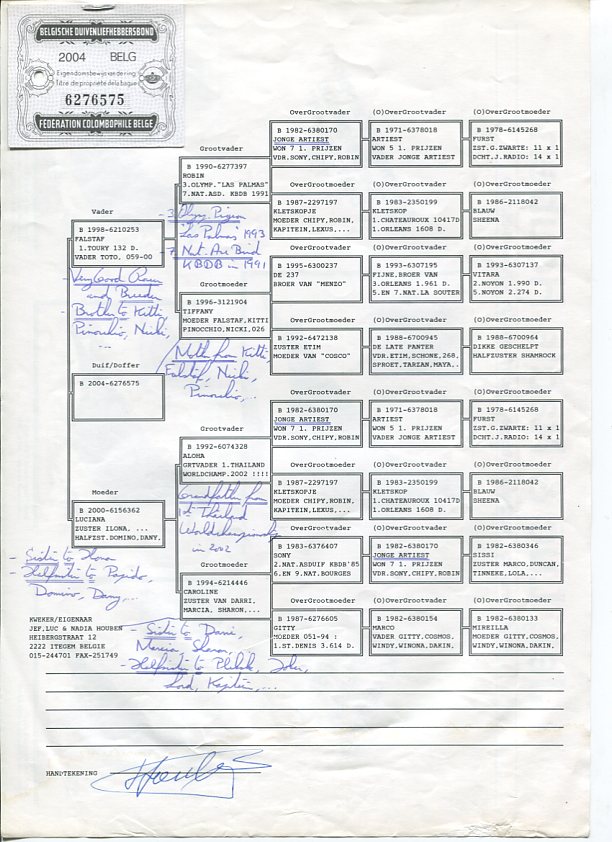 BELGISCHE DUIVENLIEFHEBBERSBOND
2004 BELG
Eigendomsbewijs van de ring
Titre de propriété de la bague
6276575
FÉDÉRATION COLOMBOPHILE BELGE
OverGrootvader (O)OverGrootvader (O)OverGrootmoeder
B 1982-6380170
JONGE ARTIEST
WON 7 1. PRIJZEN
VDR.SONY,CHIPY,ROBIN
B 1971-6378018
ARTIEST
WON 5 1. PRIJZEN
VADER JONGE ARTIEST
B 1978-6145268
FURST
ZST.G.ZWARTE: 11 x 1
DCHT.J.RADIO: 14 x 1
Grootvader
B 1990-6277397
ROBIN
3.OLYMP."LAS PALMAS"
7.NAT.ASD. KBDB 1991
OverGrootmoeder (O)OverGrootvader (O)OverGrootmoeder
B 1987-2297197
KLETSKOPJE
MOEDER CHIPY,ROBIN,
KAPITEIN,LEXUS,....
B 1983-2350199
KLETSKOP
1.CHATEAUROUX 10417D
1.ORLEANS 1608 D.
B 1986-2118042
BLAUW
SHEENA
Vader
B 1998-6210253
FALSTAF
1.TOURY 132 D.
VADER TOTO, 059-00
- 3 Olymp. Pigeon
"Las Palmas" 1993
- 7. Nat. Ace Bird
KBDB in 1991
- Very Good Racer
and Breeder
- Brother to Kitti,
Pinocchio, Nicki,
...
OverGrootvader (O)OverGrootvader (O)OverGrootmoeder
B 1995-6300237
DE 237
BROER VAN "MENZO"
B 1993-6307195
FIJNE,BROER VAN
3.ORLEANS 1.961 D.
5.EN 7.NAT.LA SOUTER
B 1993-6307137
VITARA
2.NOYON 1.990 D.
5.NOYON 2.274 D.
Grootmoeder
B 1996-3121904
TIFFANY
MOEDER FALSTAF,KITTI
PINOCCHIO,NICKI,026
OverGrootmoeder (O)OverGrootvader (O)OverGrootmoeder
B 1992-6472138
ZUSTER ETIM
MOEDER VAN "COSCO"
B 1988-6700945
DE LATE PANTER
VDR.ETIM,SCHONE,268,
SPROET,TARZAN,MAYA,..
B 1988-6700964
DIKKE GESCHELPT
HALFZUSTER SHAMROCK
Mother from Kitti,
Falstaf, Nicki,
Pinocchio,...
Duif/Doffer
B 2004-6276575
OverGrootvader (O)OverGrootvader (O)OverGrootmoeder
B 1982-6380170
JONGE ARTIEST
WON 7 1. PRIJZEN
VDR.SONY,CHIPY,ROBIN
B 1971-6378018
ARTIEST
WON 5 1. PRIJZEN
VADER JONGE ARTIEST
B 1978-6145268
FURST
ZST.G.ZWARTE: 11 x 1
DCHT.J.RADIO: 14 x 1
Grootvader
B 1992-6074328
ALOHA
GRTVADER 1.THAILAND
WORLDCHAMP.2002 !!!!
OverGrootmoeder (O)OverGrootvader (O)OverGrootmoeder
B 1987-2297197
KLETSKOPJE
MOEDER CHIPY,ROBIN,
KAPITEIN,LEXUS,....
B 1983-2350199
KLETSKOP
1.CHATEAUROUX 10417D
1.ORLEANS 1608 D.
B 1986-2118042
BLAUW
SHEENA
Moeder
B 2000-6156362
LUCIANA
ZUSTER ILONA, ...
HALFZST.DOMINO,DANY,
Grandfather from
1st Thailand
Worldchampionship
in 2002
- Sister to Ilona
- Halfsister to Pepido,
Domino, Dany...
OverGrootvader (O)OverGrootvader (O)OverGrootmoeder
B 1983-6376407
SONY
2.NAT.ASDUIF KBDB'85
6.EN 9.NAT.BOURGES
B 1982-6380170
JONGE ARTIEST
WON 7 1. PRIJZEN
VDR.SONY,CHIPY,ROBIN
B 1982-6380346
SISSI
ZUSTER MARCO,DUNCAN,
TINNEKE,LOLA,...
Grootmoeder
B 1994-6214446
CAROLINE
ZUSTER VAN DARRI,
MARCIA, SHARON,...
OverGrootmoeder (O)OverGrootvader (O)OverGrootmoeder
B 1987-6276605
GITTY
MOEDER 051-94 :
1.ST.DENIS 3.614 D.
B 1982-6380154
MARCO
VADER GITTY,COSMOS,
WINDY,WINONA,DAKIN,
B 1982-6380133
MIREILLA
MOEDER GITTY,COSMOS,
WINDY,WINONA,DAKIN,
- Sister to Darri,
Marcia, Sharon,...
- Halfsister to
Lord, Kapitein,...
KWEKER/EIGENAAR
JEF,LUC & NADIA HOUBEN
HEIBERGSTRAAT 12
2222 ITEGEM BELGIE
015-244701 FAX-251749
HANDTEKENING